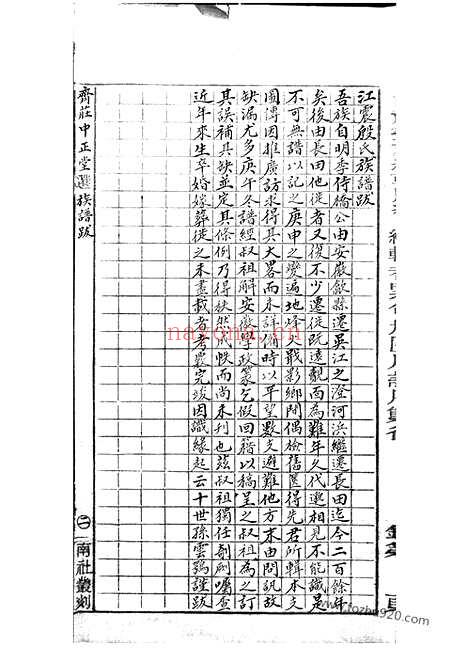 江震殷氏族譜跋
吾族自明季侍橋公由安徽歙縣遷吳江之澄河浜繼遷長田迄今二百餘年
矣後由長田他徙者又復不少遷徙既遠覿面為難年久代邈相見不能識是
不可無譜以記之庚申之變遍地烽火戢影鄉閭偶檢舊篋得先君所輯本支
圖傳因推廣訪求得其大畧而未詳備時以平望數支避難他方末由問訊故
缺漏尤多庚午冬譜經叔祖解安徽學政篆乞假回籍以稿呈之叔祖為之訂
其誤補其缺並定其條例乃得秩然成帙而尚未刊也茲叔祖獨任剞劂囑查
近年來生卒婚嫁葬徙之未盡載者者數完竣因識緣起云十世孫雲鶚謹跋
齊莊中正堂選 族譜跋
二
南社叢刻
nayona.cn
tozhe920.com